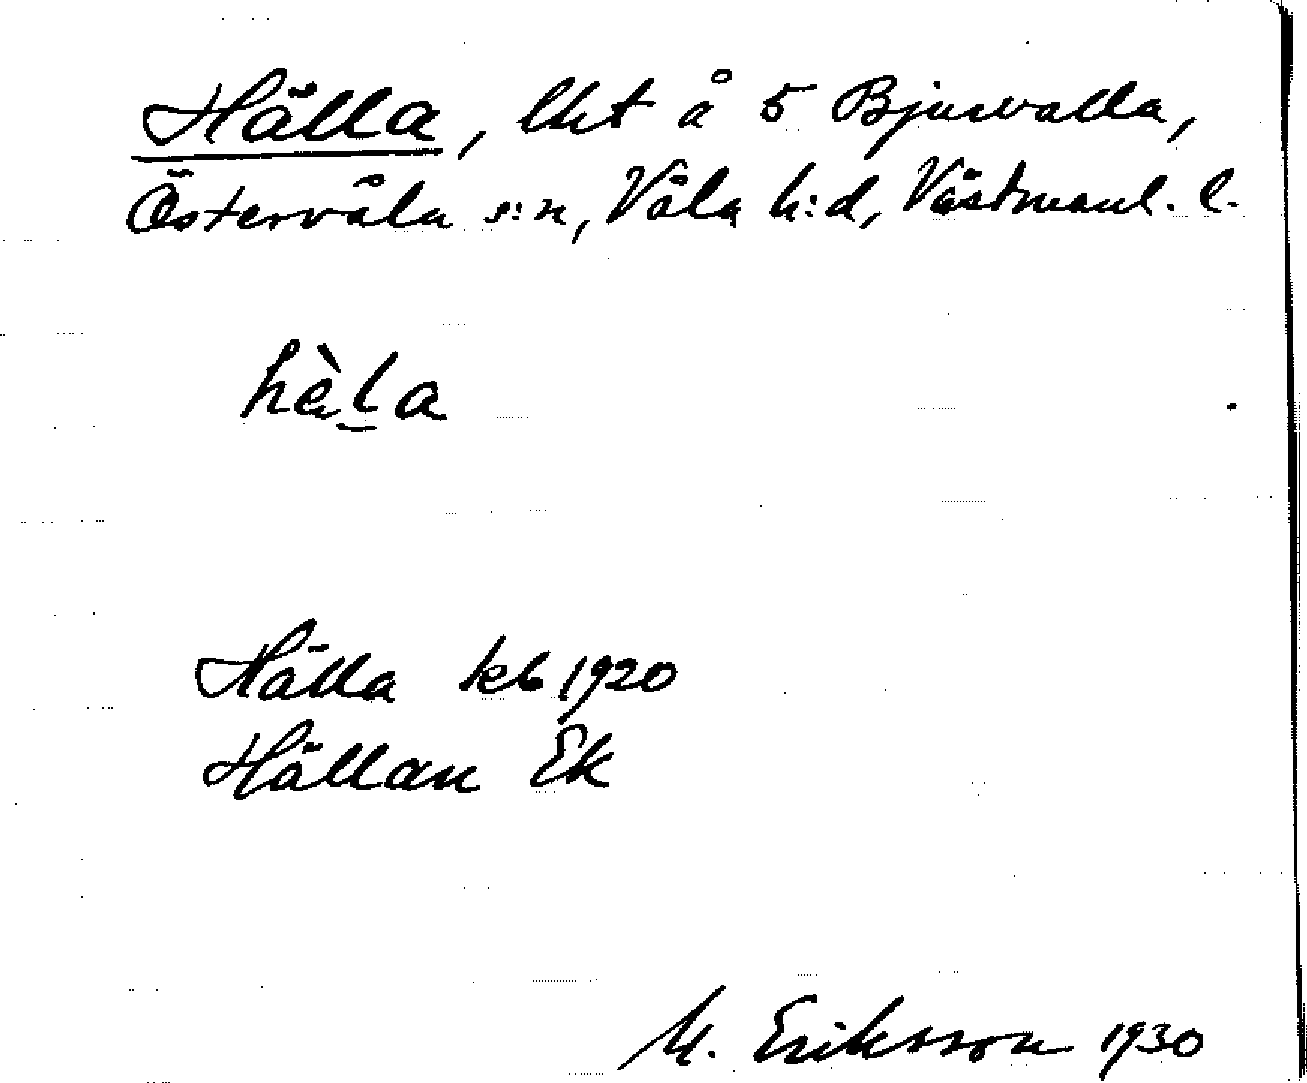 Hälla, lht å 5 Bjurvalla,
Östervåla s:n, Våla h:d, Västmanl. l.
hèl̠a
Hälla kb 1920
Hällan Ek
M. Eriksson 1930